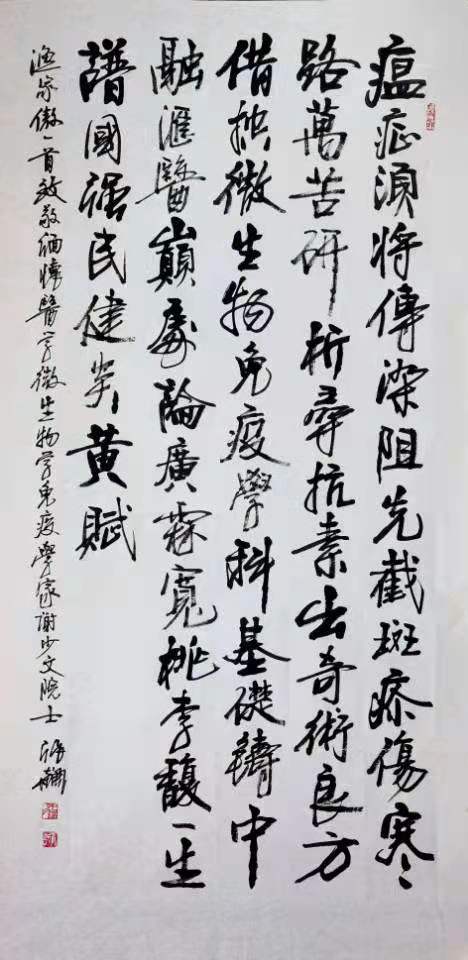 瘟症須將傳染阻先截斑疹傷寒
路萬苦研析尋抗素出奇術良方
借微生物免疫學科基礎鑄中
融滙醫巔處論廣霖寬桃李馥一生
譜國強民健岐黃賦
漁家傲一首致敬緬懷醫學微生物學免疫學家謝少文院士